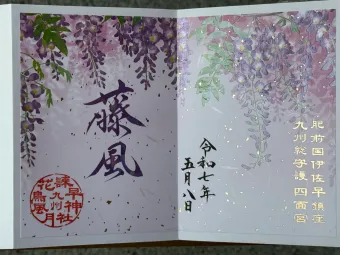 肥前国伊佐早鎮座
九州総守護 四面宮
令和七年
五月八日
藤風
諫早神社
九州
花鳥風月